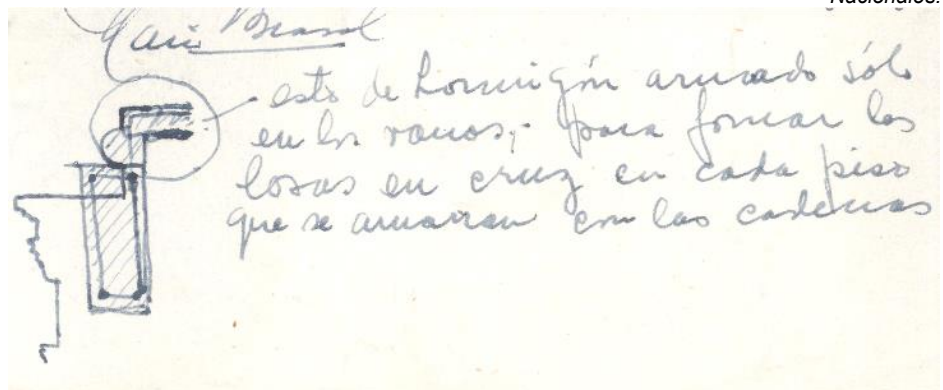 Nacionales.
esto de hormigón armado sólo
en los vanos, para formar las
losas en cruz en cada piso
que se amarran con las cadenas